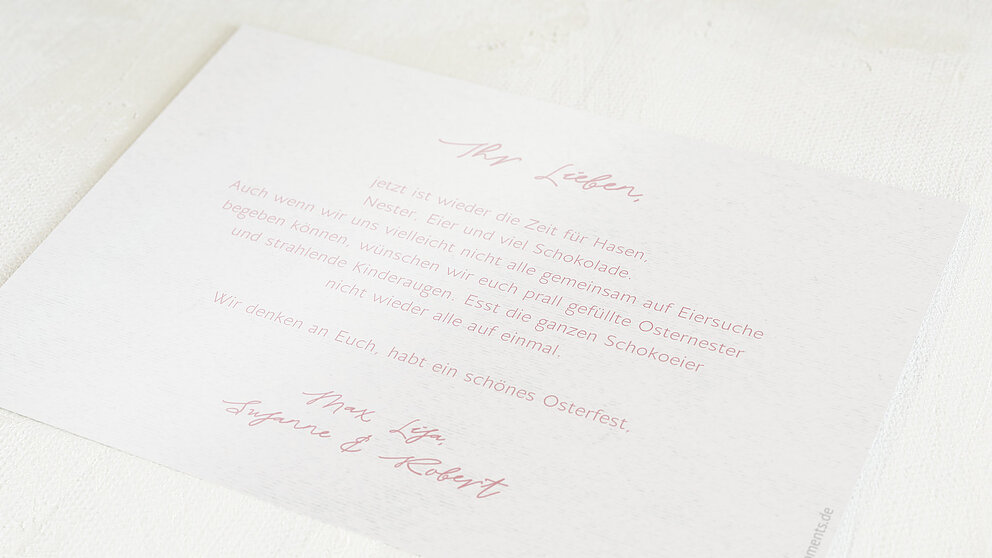 Ihr Lieben,
jetzt ist wieder die Zeit für Hasen,
Nester, Eier und viel Schokolade.
Auch wenn wir uns vielleicht nicht alle gemeinsam auf Eiersuche
begeben können, wünschen wir euch prall gefüllte Osternester
und strahlende Kinderaugen. Esst die ganzen Schokoeier
nicht wieder alle auf einmal.
Wir denken an Euch, habt ein schönes Osterfest,
Max, Lisa,
Susanne & Robert
ments.de